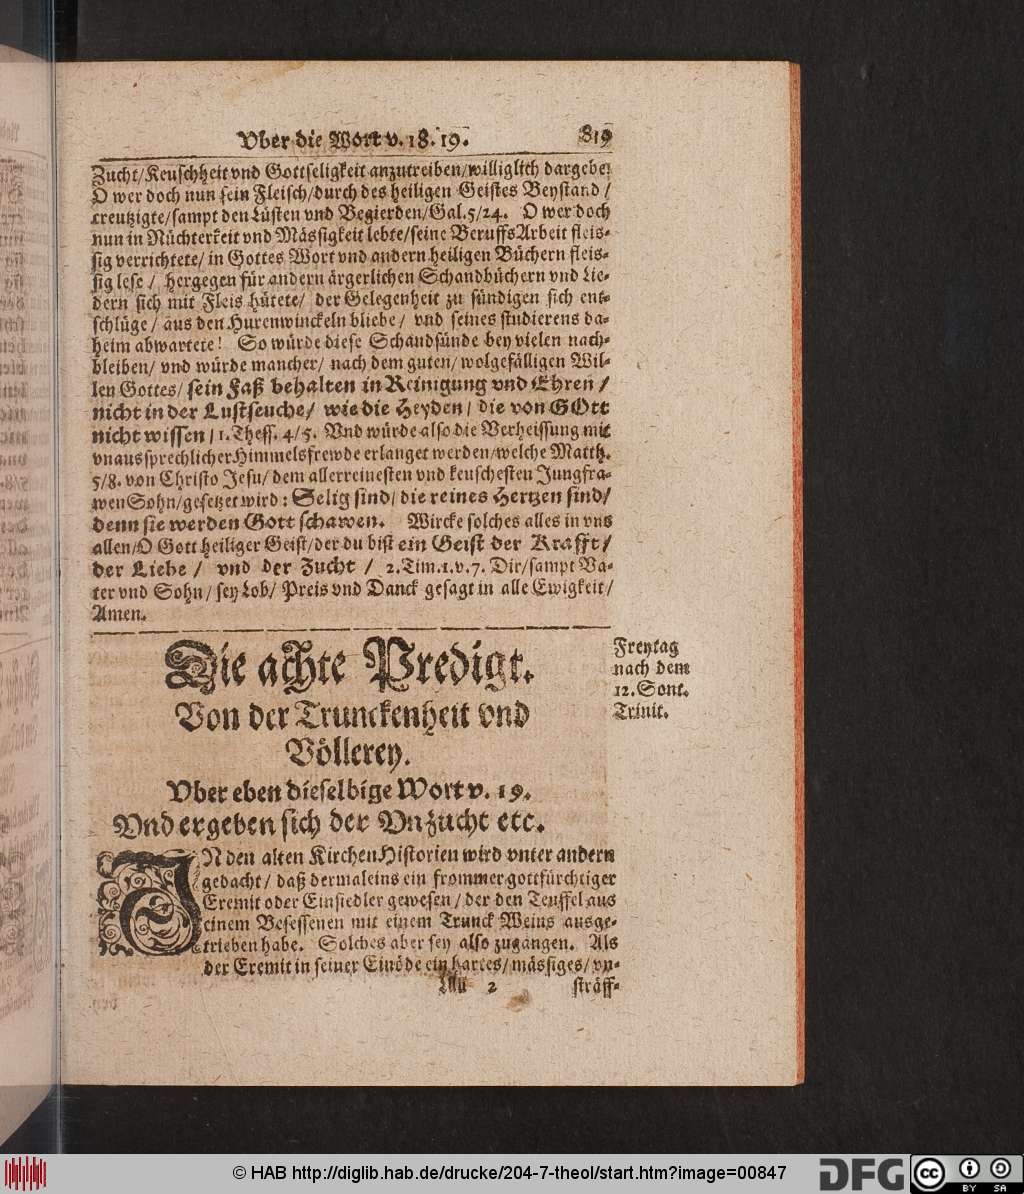 Vber die Wort v. 18. 19. 819
Zucht/Keuschheit vnd Gottseligkeit anzutreiben/williglich dargebe!
O wer doch nun sein Fleisch/durch des heiligen Geistes Beystand/
creutzigte/sampt den Lüsten vnd Begierden/Gal.5/24. O wer doch
nun in Nüchterkeit vnd Mässigkeit lebte/seine BeruffsArbeit fleis-
sig verrichtete/ in Gottes Wort vnd andern heiligen Büchern fleis-
sig lese / hergegen für andern ärgerlichen Schandbüchern vnd Lie-
dern sich mit Fleis hütete/ der Gelegenheit zu sündigen sich ent-
schlüge / aus den Hurenwinckeln bliebe / vnd seines studierens da-
heim abwartete! So würde diese Schandsünde bey vielen nach-
bleiben/ vnd würde mancher/ nach dem guten/ wolgefälligen Wil-
len Gottes/ sein Faß behalten in Reinigung vnd Ehren /
nicht in der Lustseuche/ wie die Heyden/ die von GOtt
nicht wissen/1. Thess. 4/5. Vnd würde also die Verheissung mit
vnaussprechlicher Himmelsfrewde erlanget werden/welche Matth.
5/8. von Christo Jesu/ dem allerreinesten vnd keuschesten Jungfra-
wen Sohn/gesetzet wird: Selig sind/ die reines Hertzen sind/
denn sie werden Gott schawen. Wircke solches alles in vns
allen/O Gott heiliger Geist/der du bist ein Geist der Krafft/
der Liebe / vnd der Zucht / 2.Tim.1.v.7. Dir/sampt Va-
ter vnd Sohn/ sey Lob/ Preis vnd Danck gesagt in alle Ewigkeit/
Amen.
Die achte Predigt.
Freytag
nach dem
12. Sont.
Trinit.
Von der Trunckenheit vnd
Völlerey.
Vber eben dieselbige Wort v. 19.
Vnd ergeben sich der Vnzucht etc.
IN den alten KirchenHistorien wird vnter andern
gedacht/ daß dermaleins ein frommer gottfürchtiger
Eremit oder Einsiedler gewesen/ der den Teuffel aus
einem Besessenen mit einem Trunck Weins ausge-
trieben habe. Solches aber sey also zugangen. Als
der Eremit in seiner Einöde ein hartes/ mässiges/ vn-
2 sträff-
© HAB http://diglib.hab.de/drucke/204-7-theol/start.htm?image=00847
DFG
cc BY SA